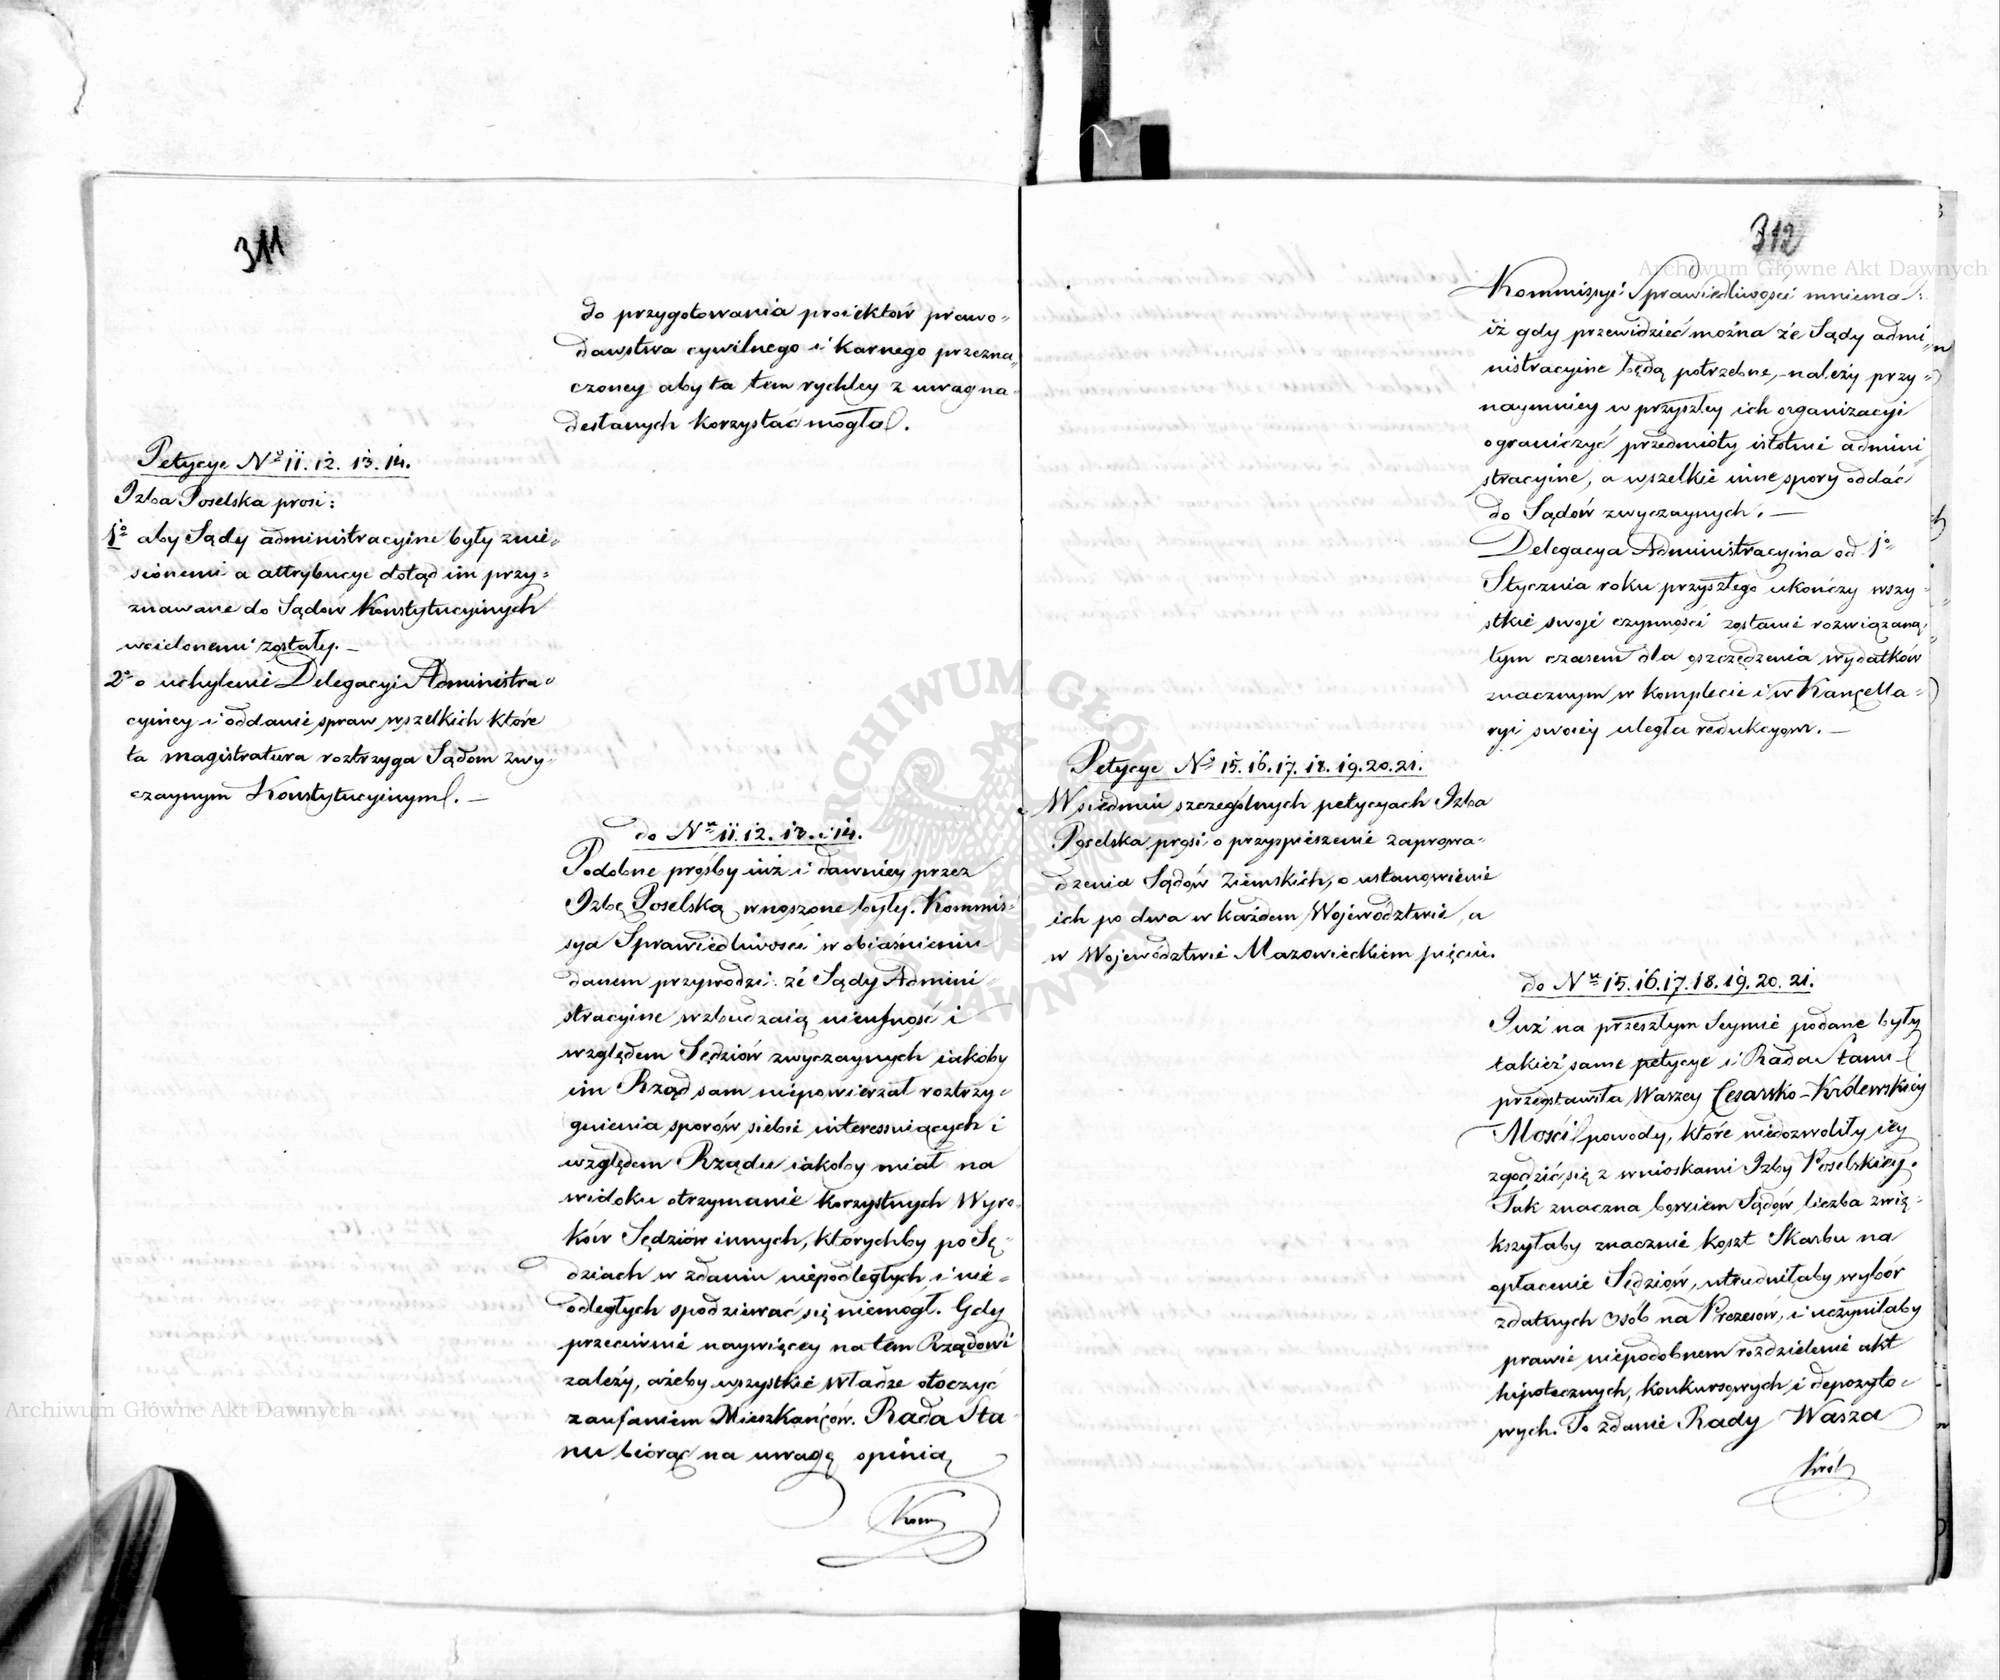 311
do przygotowania proiektów prawo-
dawstwa cywilnego i karnego przezna-
czoney aby ta tem rychley z uwag na-
desłanych korzystać mogła.
Petycye No 11. 12. 13. 14.
Izba Poselska prosi:
1o aby Sądy administracyine były znie-
sionemi a attrybucye dotąd im przy-
znawane do Sądów Konstytucyinych
wcielonemi zostały. —
2o o uchylenie Delegacyi Administra-
cyiney i oddanie spraw wszelkich które
ta magistratura roztrzyga Sądom zwy-
czaynym Konstytucyinym. —
do Nru 11. 12. 13. i 14.
Podobne prośby iuż i dawniey przez
Izbę Poselską wnoszone były. Kommis-
sya Sprawiedliwości w obiaśnieniu
danem przywodzi: że Sądy Admini-
stracyine wzbudzaią nieufność i
względem Sędziów zwyczaynych iakoby
im Rząd sam niepowierzał roztrzy-
gnienia sporów siebie interessuiących i
względem Rządu iakoby miał na
widoku otrzymanie korzystnych Wyro-
ków Sędziów innych, którychby po Sę-
dziach w zdaniu niepodległych i nie-
odległych spodziewać się niemogł. Gdy
przeciwnie naywięcey na tem Rządowi
zależy, ażeby wszystkie Władze otoczyć
zaufaniem Mieszkańców. Rada Sta-
nu biorąc na uwagę opinią
Kom
312
Kommissyi Sprawiedliwości mniema:
iż gdy przewidzieć można że Sądy admi-
nistracyine będą potrzebne, należy przy-
naymniey w przyszłey ich organizacyi
ograniczyć przedmioty istotnie admini
stracyine, a wszelkie inne spory oddać
do Sądów zwyczaynych. —
Delegacya Administracyina od 1o
Stycznia roku przyszłego ukończy wszy-
stkie swoje czynności zostanie rozwiązaną,
tym czasem dla oszczędzenia wydatków
znacznym w komplecie i w Kancella-
ryi swoiey uległa redukcyom. —
Petycye No 15. 16. 17. 18. 19. 20. 21.
W siedmiu szczególnych petycyach Izba
Poselska prosi o przyspieszenie zaprowa-
dzenia Sądów Ziemskich, o ustanowienie
ich po dwa w każdem Województwie, a
w Województwie Mazowieckiem pięciu.
do Nru 15. 16. 17. 18. 19. 20. 21.
Już na przeszłym Seymie podane były
takież same petycye i Rada Stanu
przedstawiła Waszey Cesarsko-Królewskiey
Mości powody, które niedozwoliły iey
zgodzić się z wnioskami Izby Poselskiey.
Tak znaczna bowiem Sądów liczba zwię-
kszyłaby znacznie koszt Skarbu na
opłacenie Sędziów, utrudniłaby wybór
zdatnych Osób na Prezesów, i uczyniłaby
prawie niepodobnem rozdzielenie akt
hipotecznych, konkursowych i depozyto-
wych. To zdanie Rady Wasza
Król
Archiwum Główne Akt Dawnych
Archiwum Główne Akt Dawnych
ARCHIWUM GŁÓWNE AKT DAWNYCH